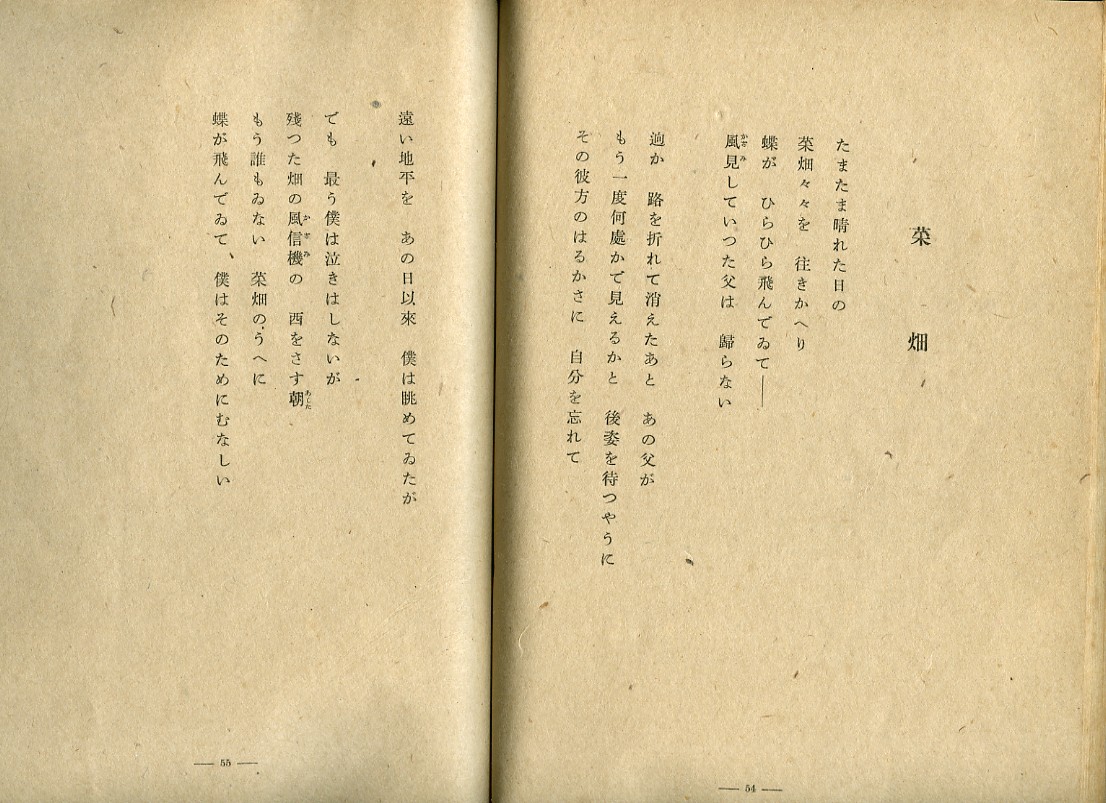 菜畑
たまたま晴れた日の
菜畑々々を　往きかへり
蝶が　ひらひら飛んでゐて――
風見していつた父は　歸らない
かざみ
遥か　路を折れて消えたあと　あの父が
もう一度何處かで見えるかと　後姿を待つやうに
その彼方のはるかさに　自分を忘れて
— 54 —
遠い地平を　あの日以來　僕は眺めてゐたが
でも　最う僕は泣きはしないが
残つた畑の風信機の　西をさす朝
かざみ
あした
もう誰もゐない　菜畑のうへに
蝶が飛んでゐて、僕はそのためにむなしい
— 55 —